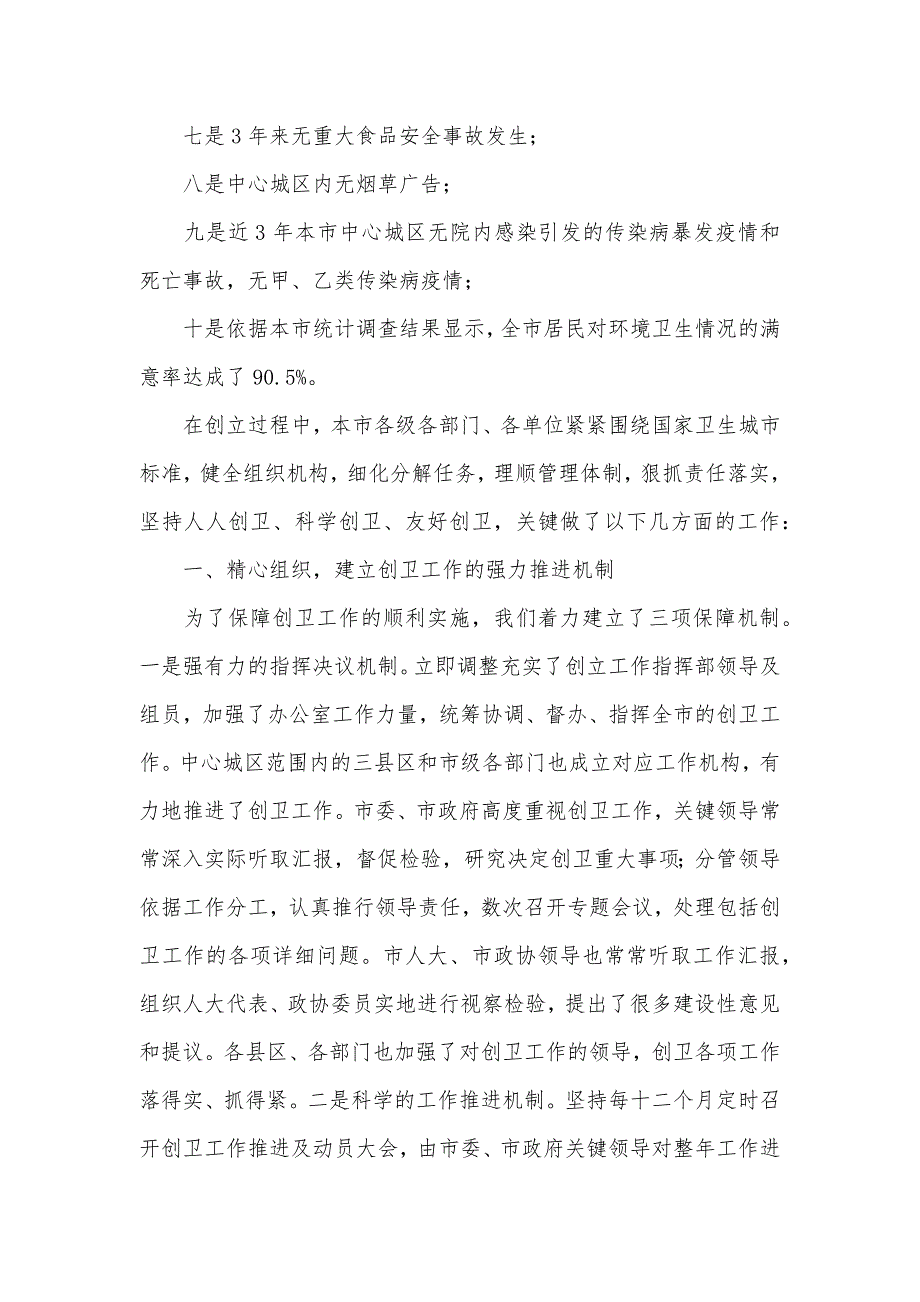 七是 3 年来无重大食品安全事故发生；
八是中心城区内无烟草广告；
九是近 3 年本市中心城区无院内感染引发的传染病暴发疫情和
死亡事故，无甲、乙类传染病疫情；
十是依据本市统计调查结果显示，全市居民对环境卫生情况的满
意率达成了 90.5%。
在创立过程中，本市各级各部门、各单位紧紧围绕国家卫生城市
标准，健全组织机构，细化分解任务，理顺管理体制，狠抓责任落实，
坚持人人创卫、科学创卫、友好创卫，关键做了以下几方面的工作：
一、精心组织，建立创卫工作的强力推进机制
为了保障创卫工作的顺利实施，我们着力建立了三项保障机制。
一是强有力的指挥决议机制。立即调整充实了创立工作指挥部领导及
组员，加强了办公室工作力量，统筹协调、督办、指挥全市的创卫工
作。中心城区范围内的三县区和市级各部门也成立对应工作机构，有
力地推进了创卫工作。市委、市政府高度重视创卫工作，关键领导常
常深入实际听取汇报，督促检验，研究决定创卫重大事项；分管领导
依据工作分工，认真推行领导责任，数次召开专题会议，处理包括创
卫工作的各项详细问题。市人大、市政协领导也常常听取工作汇报，
组织人大代表、政协委员实地进行视察检验，提出了很多建设性意见
和提议。各县区、各部门也加强了对创卫工作的领导，创卫各项工作
落得实、抓得紧。二是科学的工作推进机制。坚持每十二个月定时召
开创卫工作推进及动员大会，由市委、市政府关键领导对整年工作进